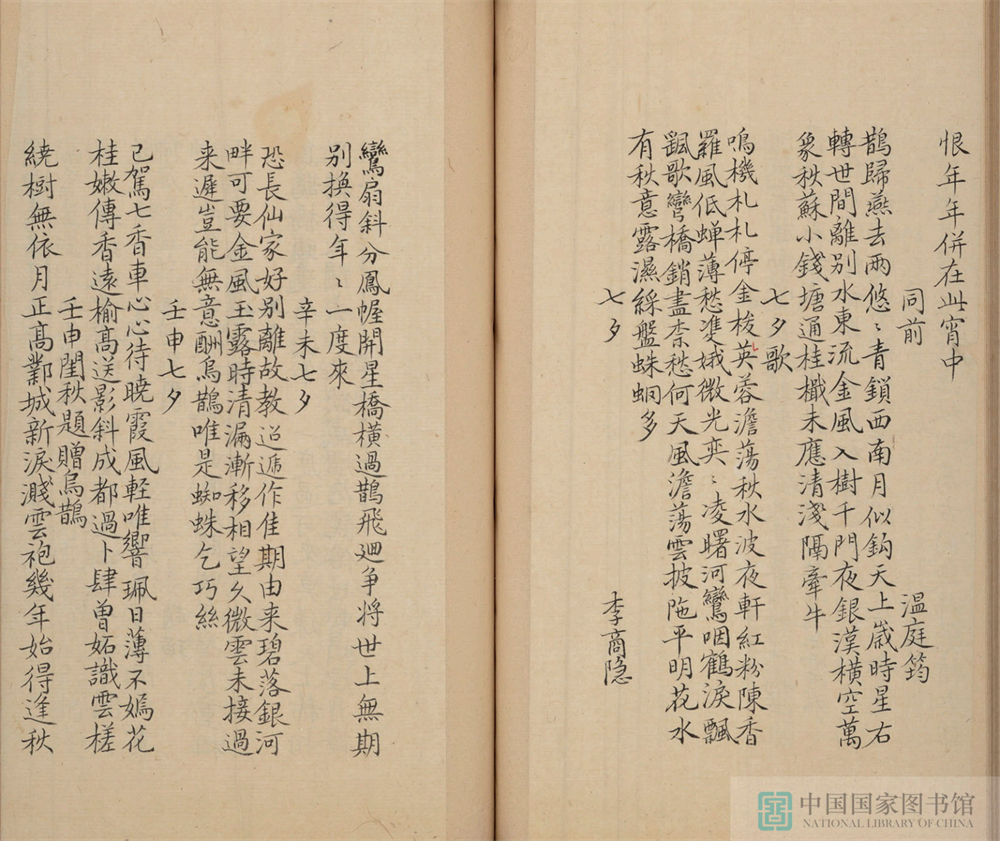 恨年年併在此宵中
同前　温庭筠
鵲歸燕去兩悠〻青鎖西南月似鈎天上歲時星右
轉世間離別水東流金風入樹千門夜銀漢橫空萬
象秋蘇小錢塘通桂檝未應清淺隔牽牛
七夕歌
鳴機札札停金梭芙蓉澹蕩秋水波夜軒紅粉陳香
羅風低蟬薄愁雙蛾微光奕〻凌曙河鸞咽鶴淚飄
飄歌彎橋銷盡柰愁何天風澹蕩雲披陁平明花水
有秋意露濕綵盤蛛蛧多
七夕　李商隐
鸞扇斜分鳳幄開星橋橫過鵲飛廻爭將世上無期
別換得年〻一度來
辛未七夕
恐長仙家好別離故教迢遞作佳期由来碧落銀河
畔可要金風玉露時清漏漸移相望久微雲未接過
来遲豈能無意酬烏鵲唯是蜘蛛乞巧絲
壬申七夕
已駕七香車心心待曉霞風軽唯響珮日薄不嫣花
桂嫩傳香遠榆高送影斜成都過卜肆曾妬識雲槎
壬申閏秋題贈烏鵲
繞樹無依月正高鄴城新淚濺雲袍幾年始得逢秋
中国国家图书馆
NATIONAL LIBRARY OF CHINA